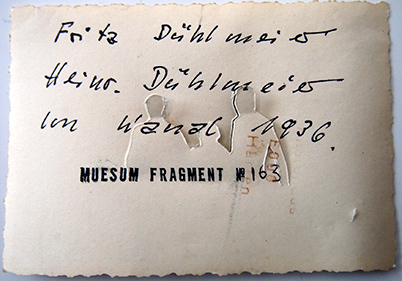 Fritz Dühlmeier
Heinr. Dühlmeier
Im Kanal 1936.
MUESUM FRAGMENT № 163